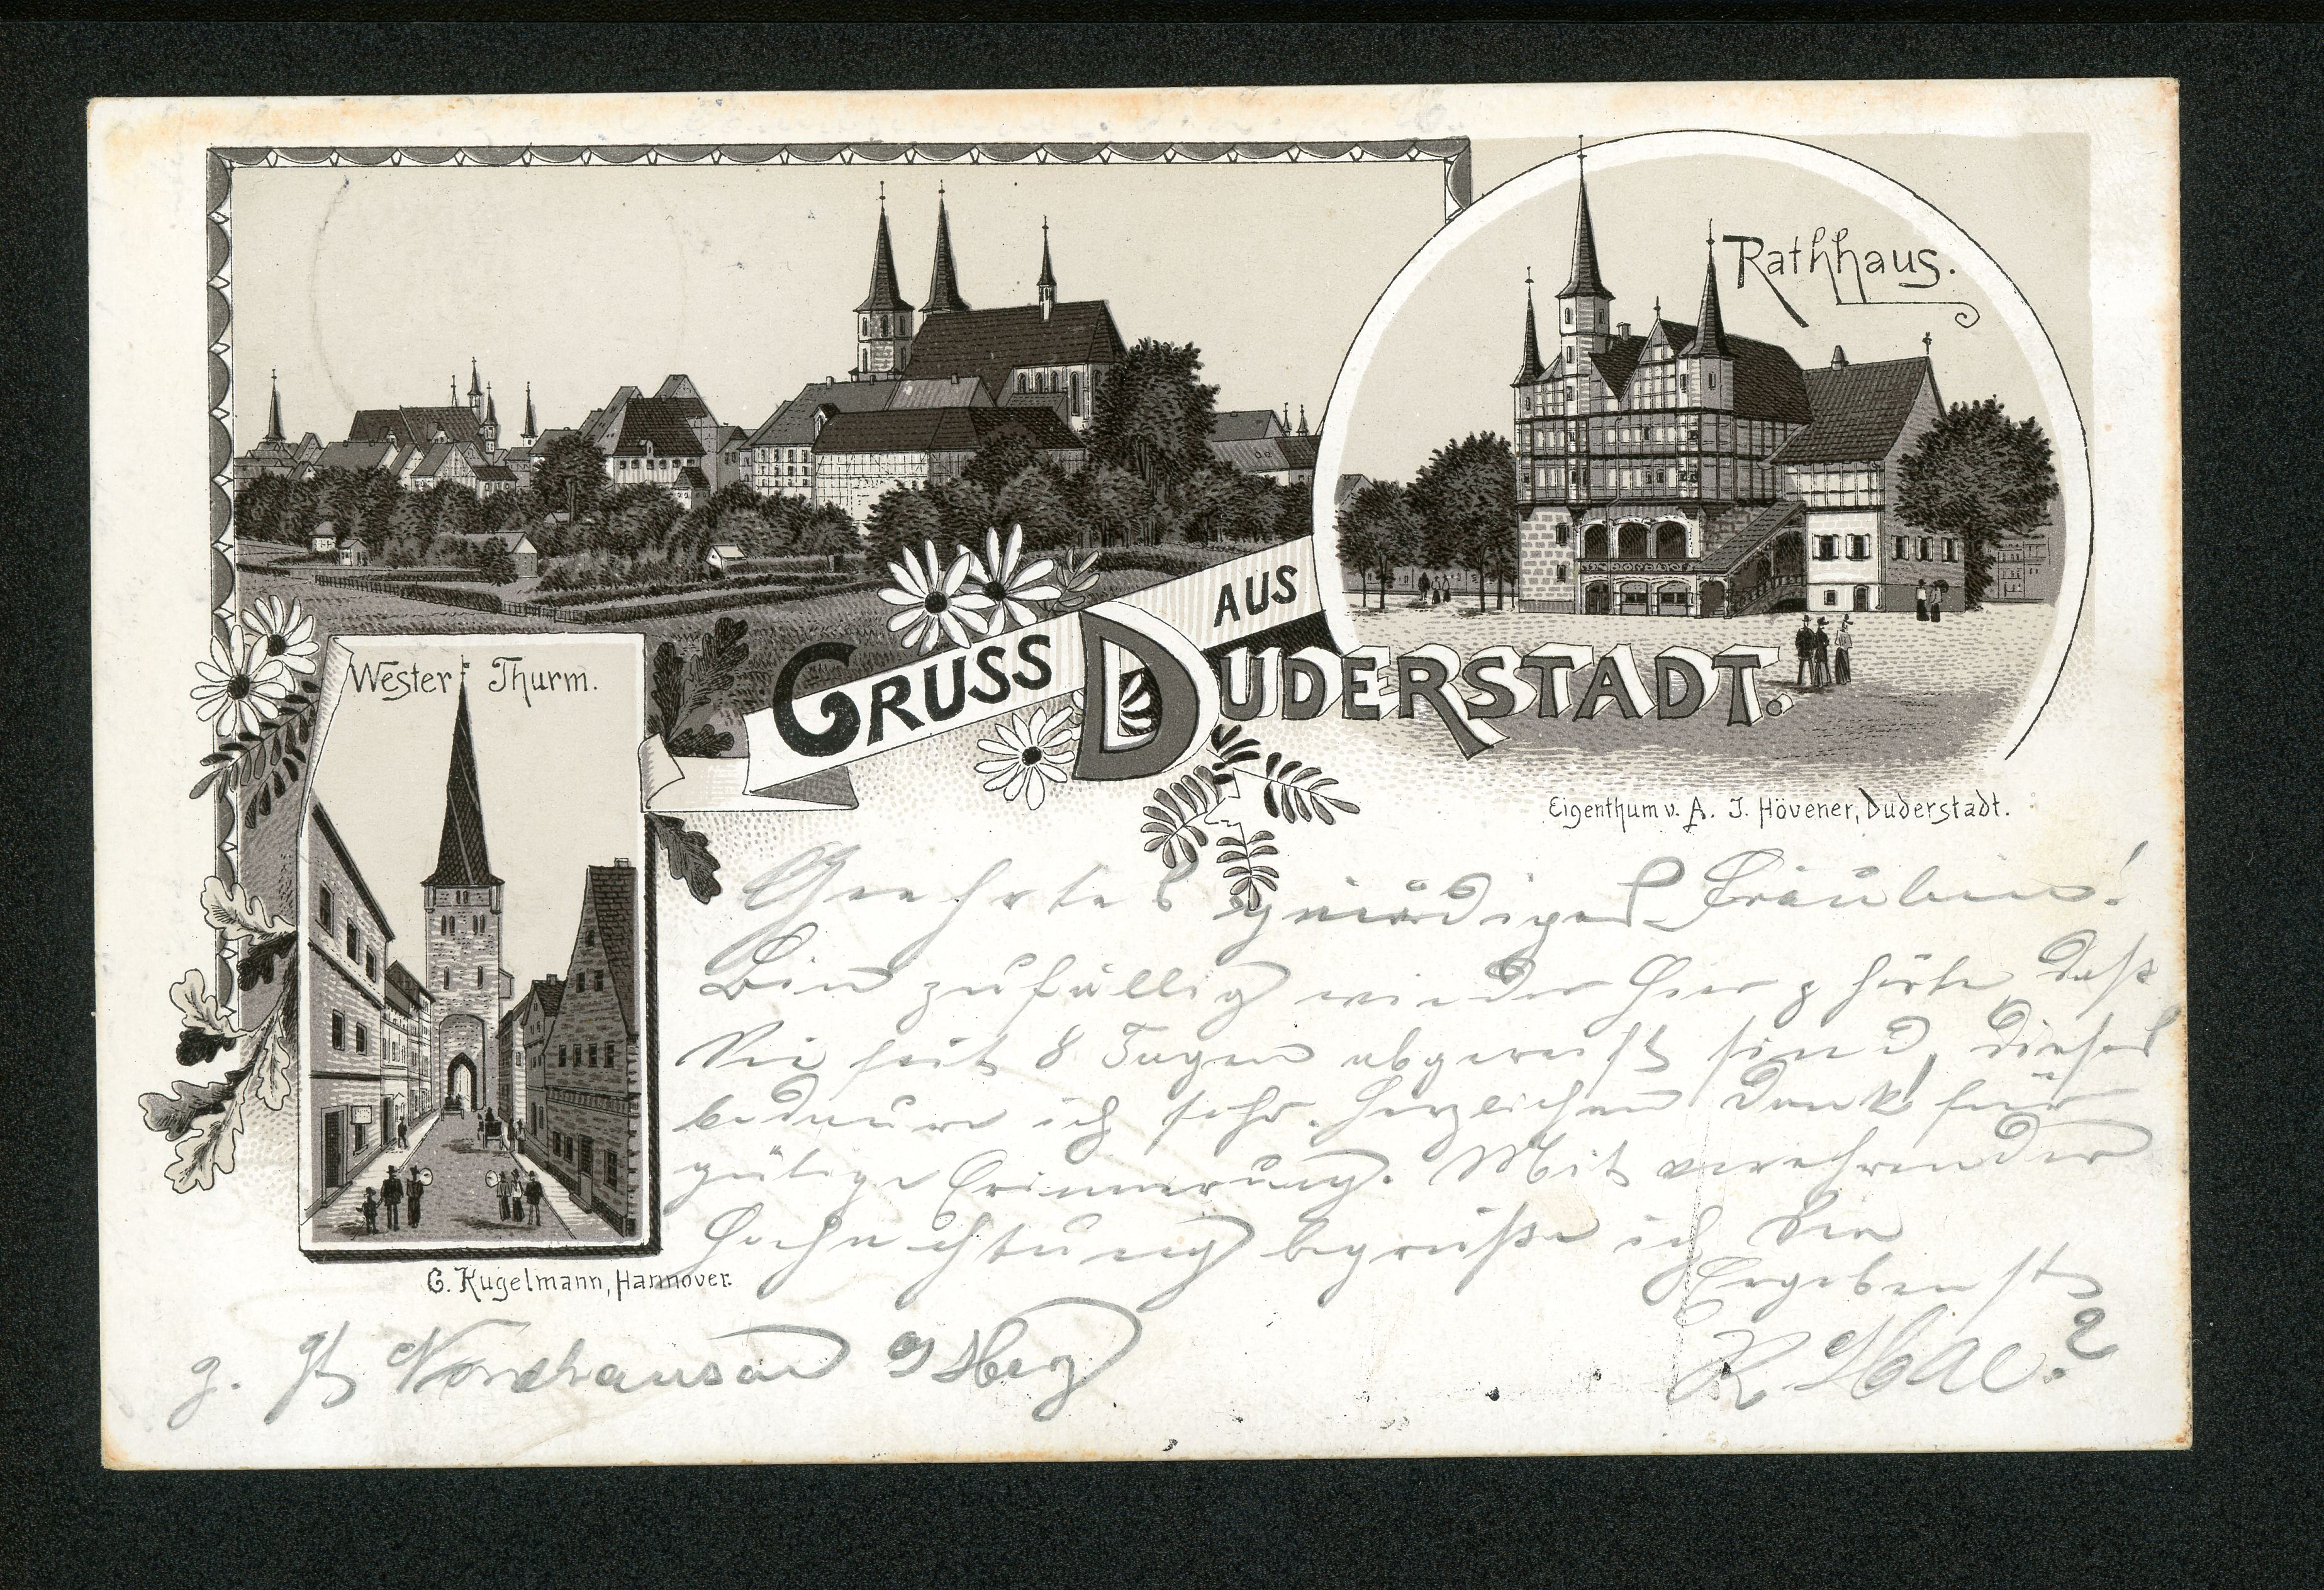 Rathhaus.
Wester Thurm.
GRUSS AUS DUDERSTADT.
Eigenthum v. A. J. Hövener, Duderstadt.
Geehrtes gnädiges Fräulein!
Bin zufällig wieder hier & hörte, daß
Sie seit 8 Tagen abgereist sind, dieses
bedaure ich sehr. Herzlichen Dank für
gütige Erinnerung. Mit verehrender
Hochachtung begrüße ich Sie
Ergebenst
G. Kugelmann, Hannover.
z. Zt Nordhausen